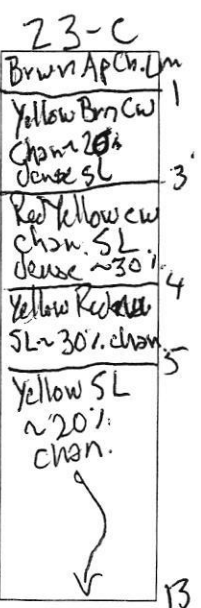 23-C
Brwn Ap Ch. Lm
1
Yellow Brn CW
Chan ~ 20%
dense SL
3
Red Yellow cw
chan. SL.
dense ~30%
4
Yellow Red
SL ~ 30% chan
5
Yellow SL
~20%
chan.
13